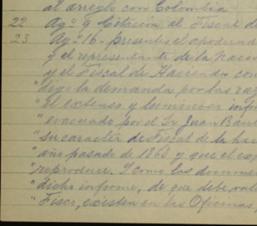 al arreglo con Colombia
22 Agº 9. Citacion al Fiscal de
23 Agº 16. presentó el apoderado
y el representante de la Nacion
y el Fiscal de Hacienda con
" la demanda por las
" el extenso y luminoso
" evacuado por el Sr Juan
" su carácter de Fiscal de la
" año pasado de y que el
" reproduce. Y como los
" dicho informe, de que debe
" Fisco, existen en las Oficinas